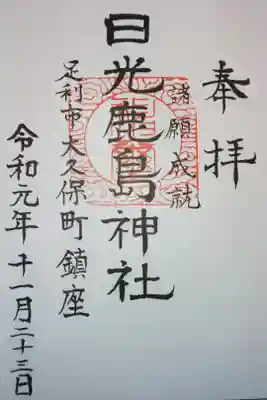 奉拝
諸願成就
日光鹿島神社
足利市大久保町鎮座
令和元年十一月二十三日